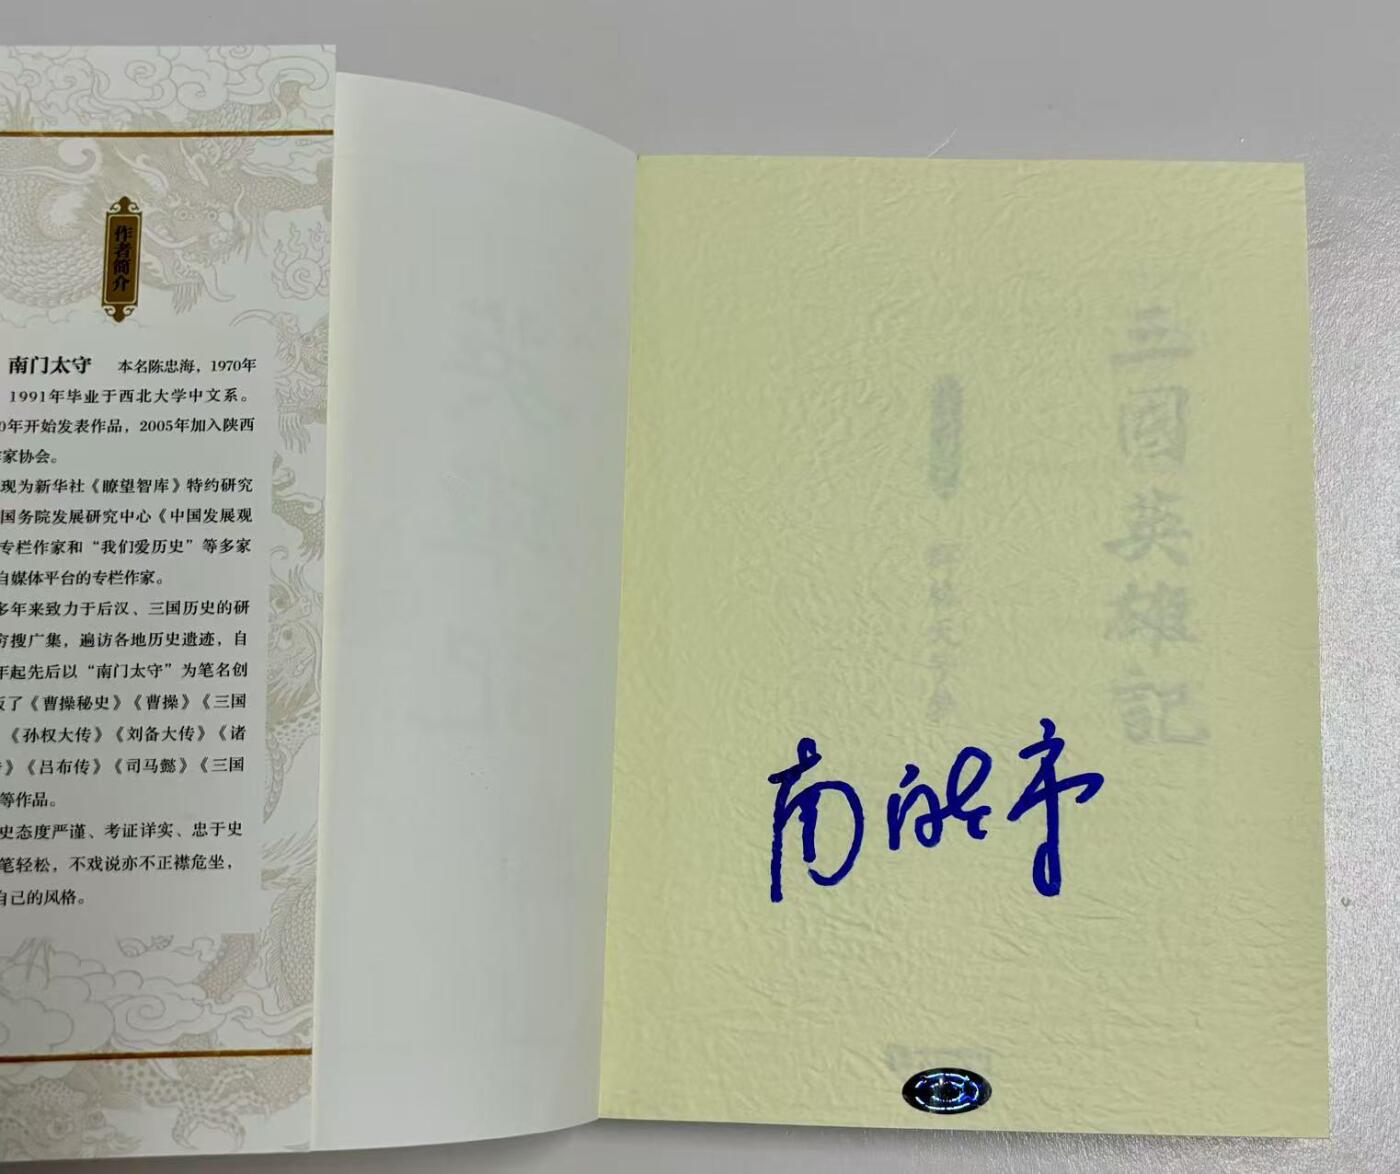 作者简介
南门太守 本名陈忠海，1970年
1991年毕业于西北大学中文系。
0年开始发表作品，2005年加入陕西
作家协会。
现为新华社《瞭望智库》特约研究
国务院发展研究中心《中国发展观
专栏作家和“我们爱历史”等多家
自媒体平台的专栏作家。
多年来致力于后汉、三国历史的研
穷搜广集，遍访各地历史遗迹，自
年起先后以“南门太守”为笔名创
版了《曹操秘史》《曹操》《三国
》《孙权大传》《刘备大传》《诸
》《吕布传》《司马懿》《三国
等作品。
史态度严谨、考证详实、忠于史
笔轻松，不戏说亦不正襟危坐，
自己的风格。
三國英雄記
南门太守